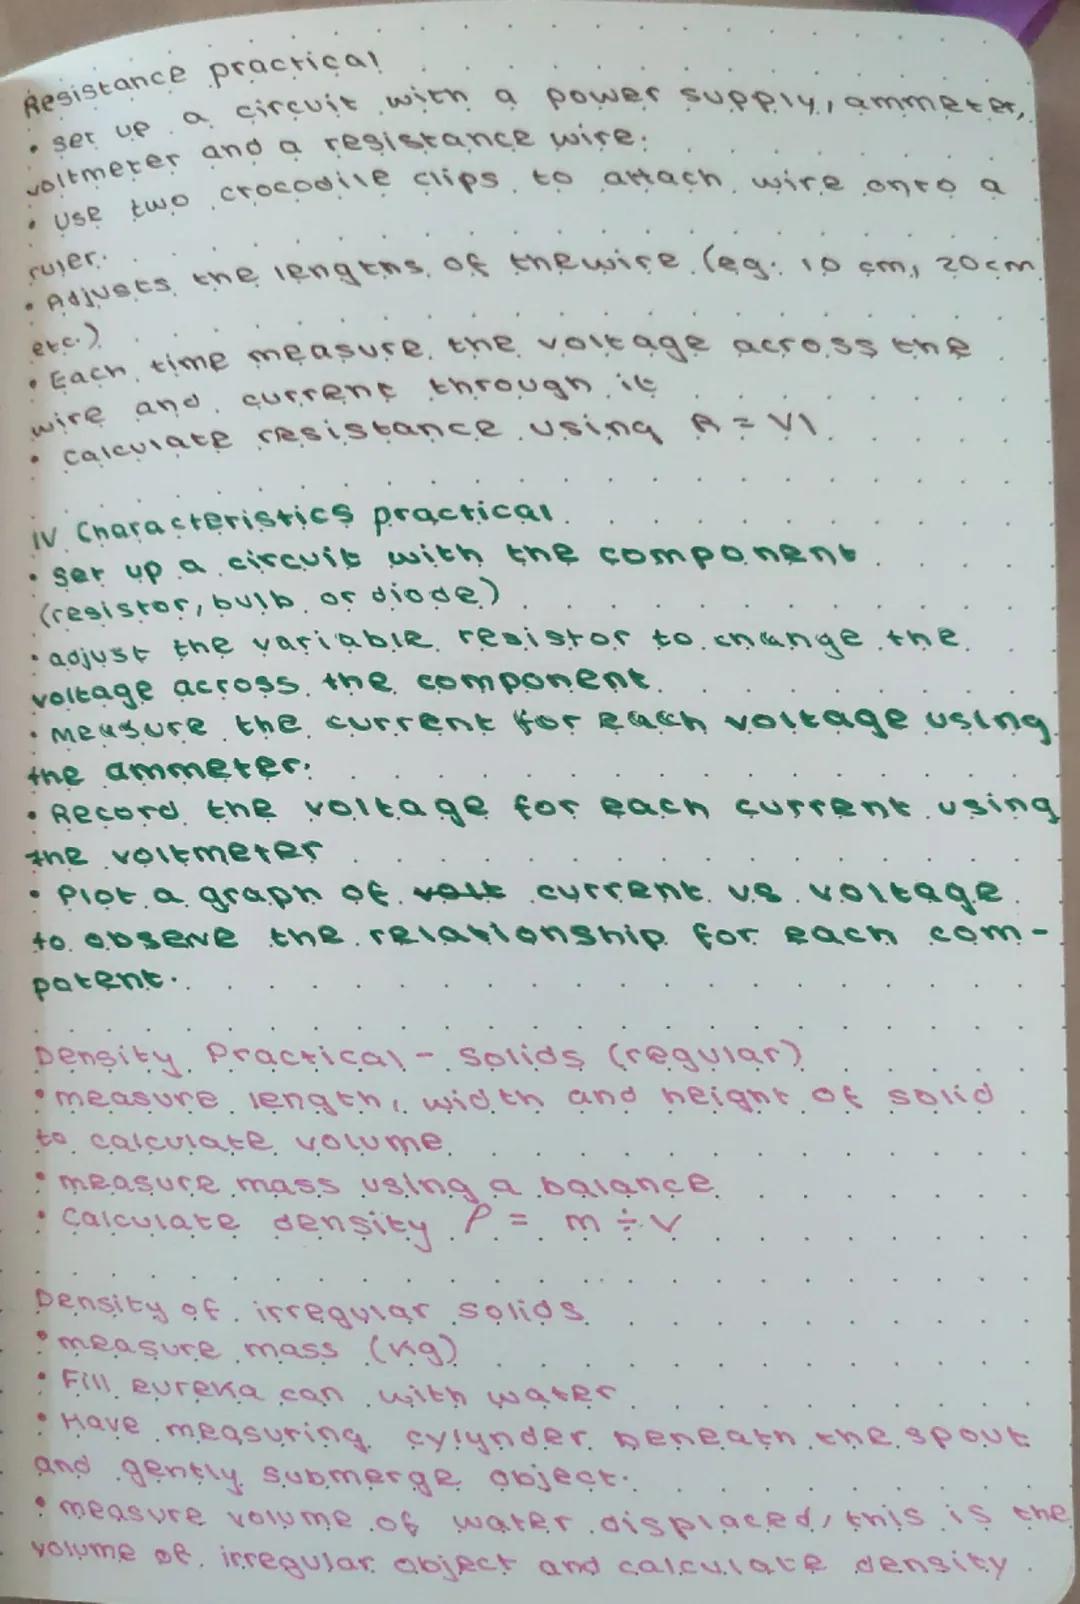 Resistance practical
• set up a circuit with a power supply, ammeter,
voltmeter and a resistance wire.
• Use two crocodile clips to attach wire onto a
ruler.
• Adjusts the lengths of the wire (eg. 10 cm, 20cm
etc.)
• Each time measure the voltage across the
wire and current through it
• calculate resistance using R = VI
IV Characteristics practical
• set up a circuit with the component
(resistor, bulb or diode)
• adjust the variable resistor to change the
voltage across the component
• measure the current for each voltage using
the ammeter.
• Record the voltage for each current using
the voltmeter
• Plot a graph of volt current vs voltage
to observe the relationship for each com-
potent.
Density Practical - Solids (regular)
• measure length, width and height of solid
to calculate volume
• measure mass using a balance
• calculate density ρ = m ÷ v
Density of irregular solids
• measure mass (kg)
• Fill eureka can with water
• Have measuring cylynder beneath the spout
and gently submerge object.
• measure volume of water displaced, this is the
volume of irregular object and calculate density